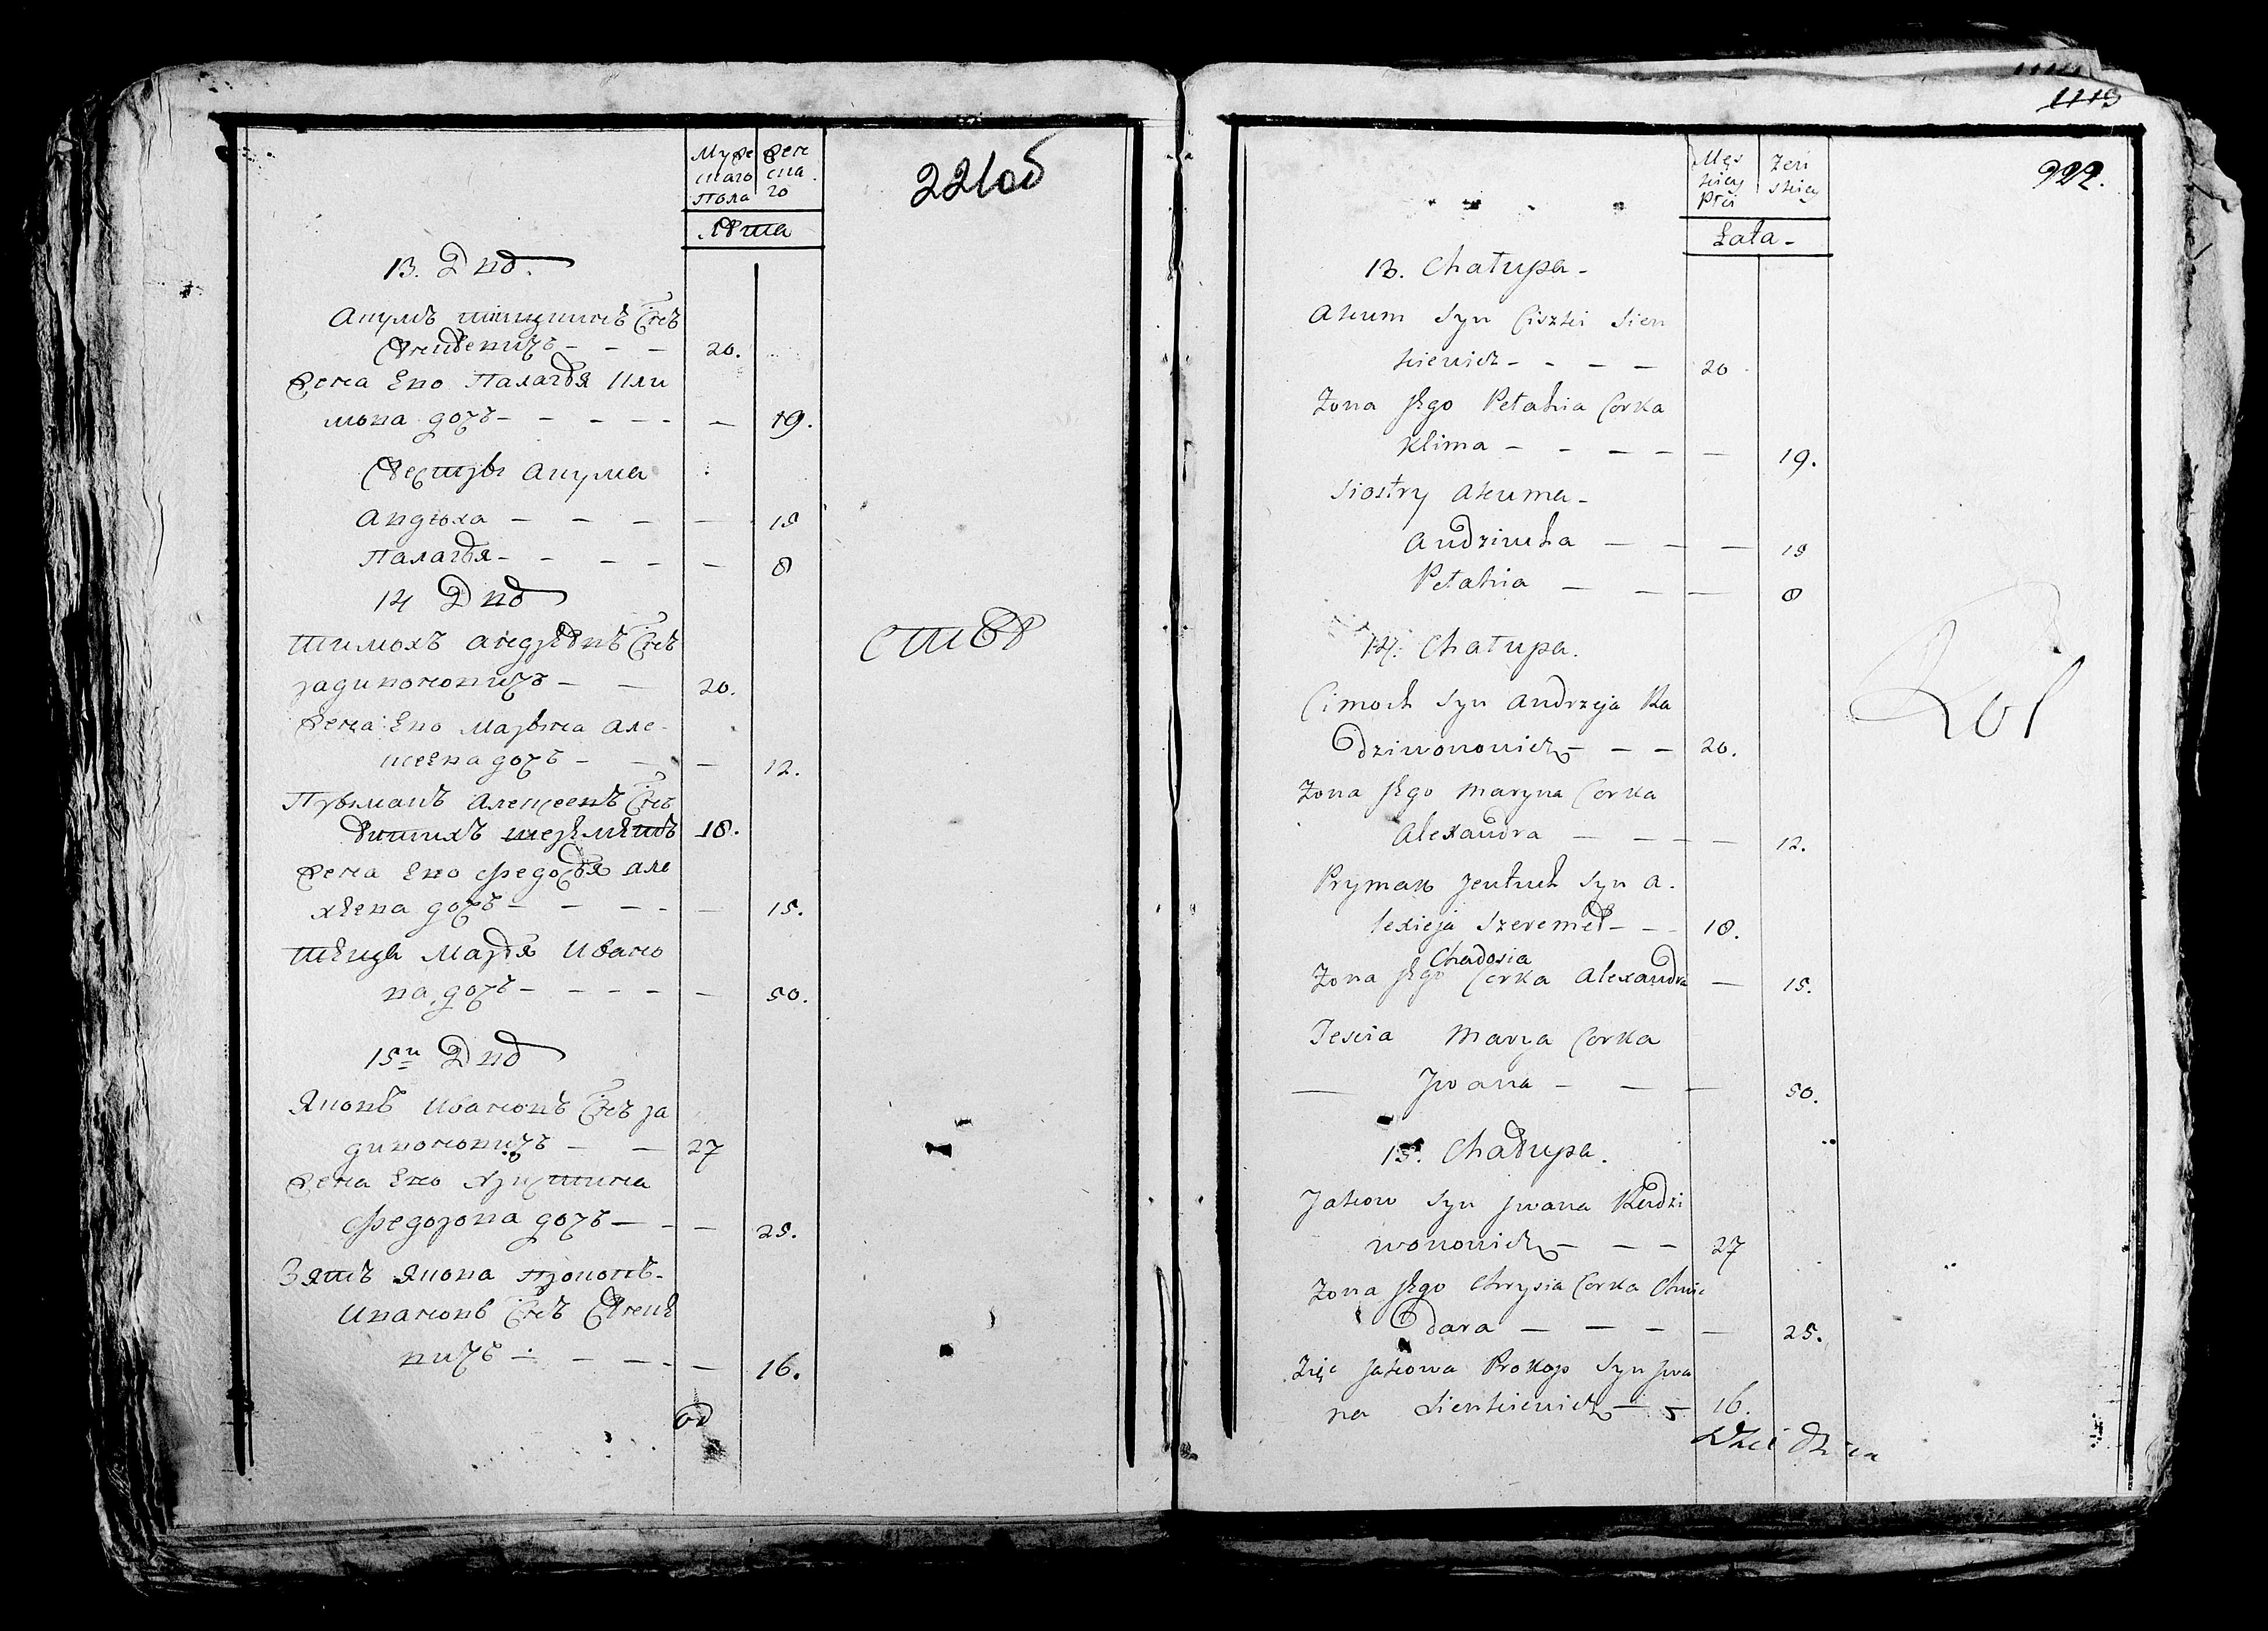 Муже жене
скаго ска
Пола го
Лѣта
221об
13. Двор
Акумъ тишкинъ Снъ
Сенкевичъ - - - 20.
Жена Его Палагѣя Кли
мова дочь - - - - - 19.
Сестры акума
Андюха - - - - 15
Палагѣя - - - - - 8
14 Двор
Тимохъ андреевъ Снъ
радивоновичъ - - 20.
Жена Его Марына Але-
ксеева дочь - - - 12.
Прыманъ алексеевъ Снъ
шереметъ 18.
Жена Его Федосья але
ксеева дочь - - - - - 15.
Тешща Марья Ивано
ва дочь - - - - - 50.
15й Двор
Яковъ Ивановъ Снъ ра
дивоновичъ - - 27
Жена Его Христина
Федорова дочь - - - 25.
Зять Якова Прокопъ
Ивановъ Снъ Сенке
вичъ - - - - - 16.
1115
922.
Męs Żeń
kiey skiey
Płci
Łata -
13. Chałupa -
Akum Syn Ciszki Sien
kiewicz - - - - 20
Żona Jego Pełahia Corka
Klima - - - - - - 19.
Siostry Akuma -
Andziucha - - - 15
Pełahia - - - 8
14. Chałupa.
Cimoch Syn Andrzeja Ra
dziwonowicz - - - 20.
Żona Jego Maryna Corka
Alexandra - - - - 12.
Prymak Jeutuch Syn A.
lexieja Szeremet - - - 18.
Chadosia
Żona Jego Corka Alexandra - 15.
Tescia Marya Corka
- Jwana - - - 50.
15. Chałupa.
Jakow Syn Jwana Radzi
wonowicz - - - 27
Żona Jego Chrysia Corka Chwie
dara - - - - 25.
Zięc Jakowa Prokop Syn Jwa
na Sienkiewicz - - 16.